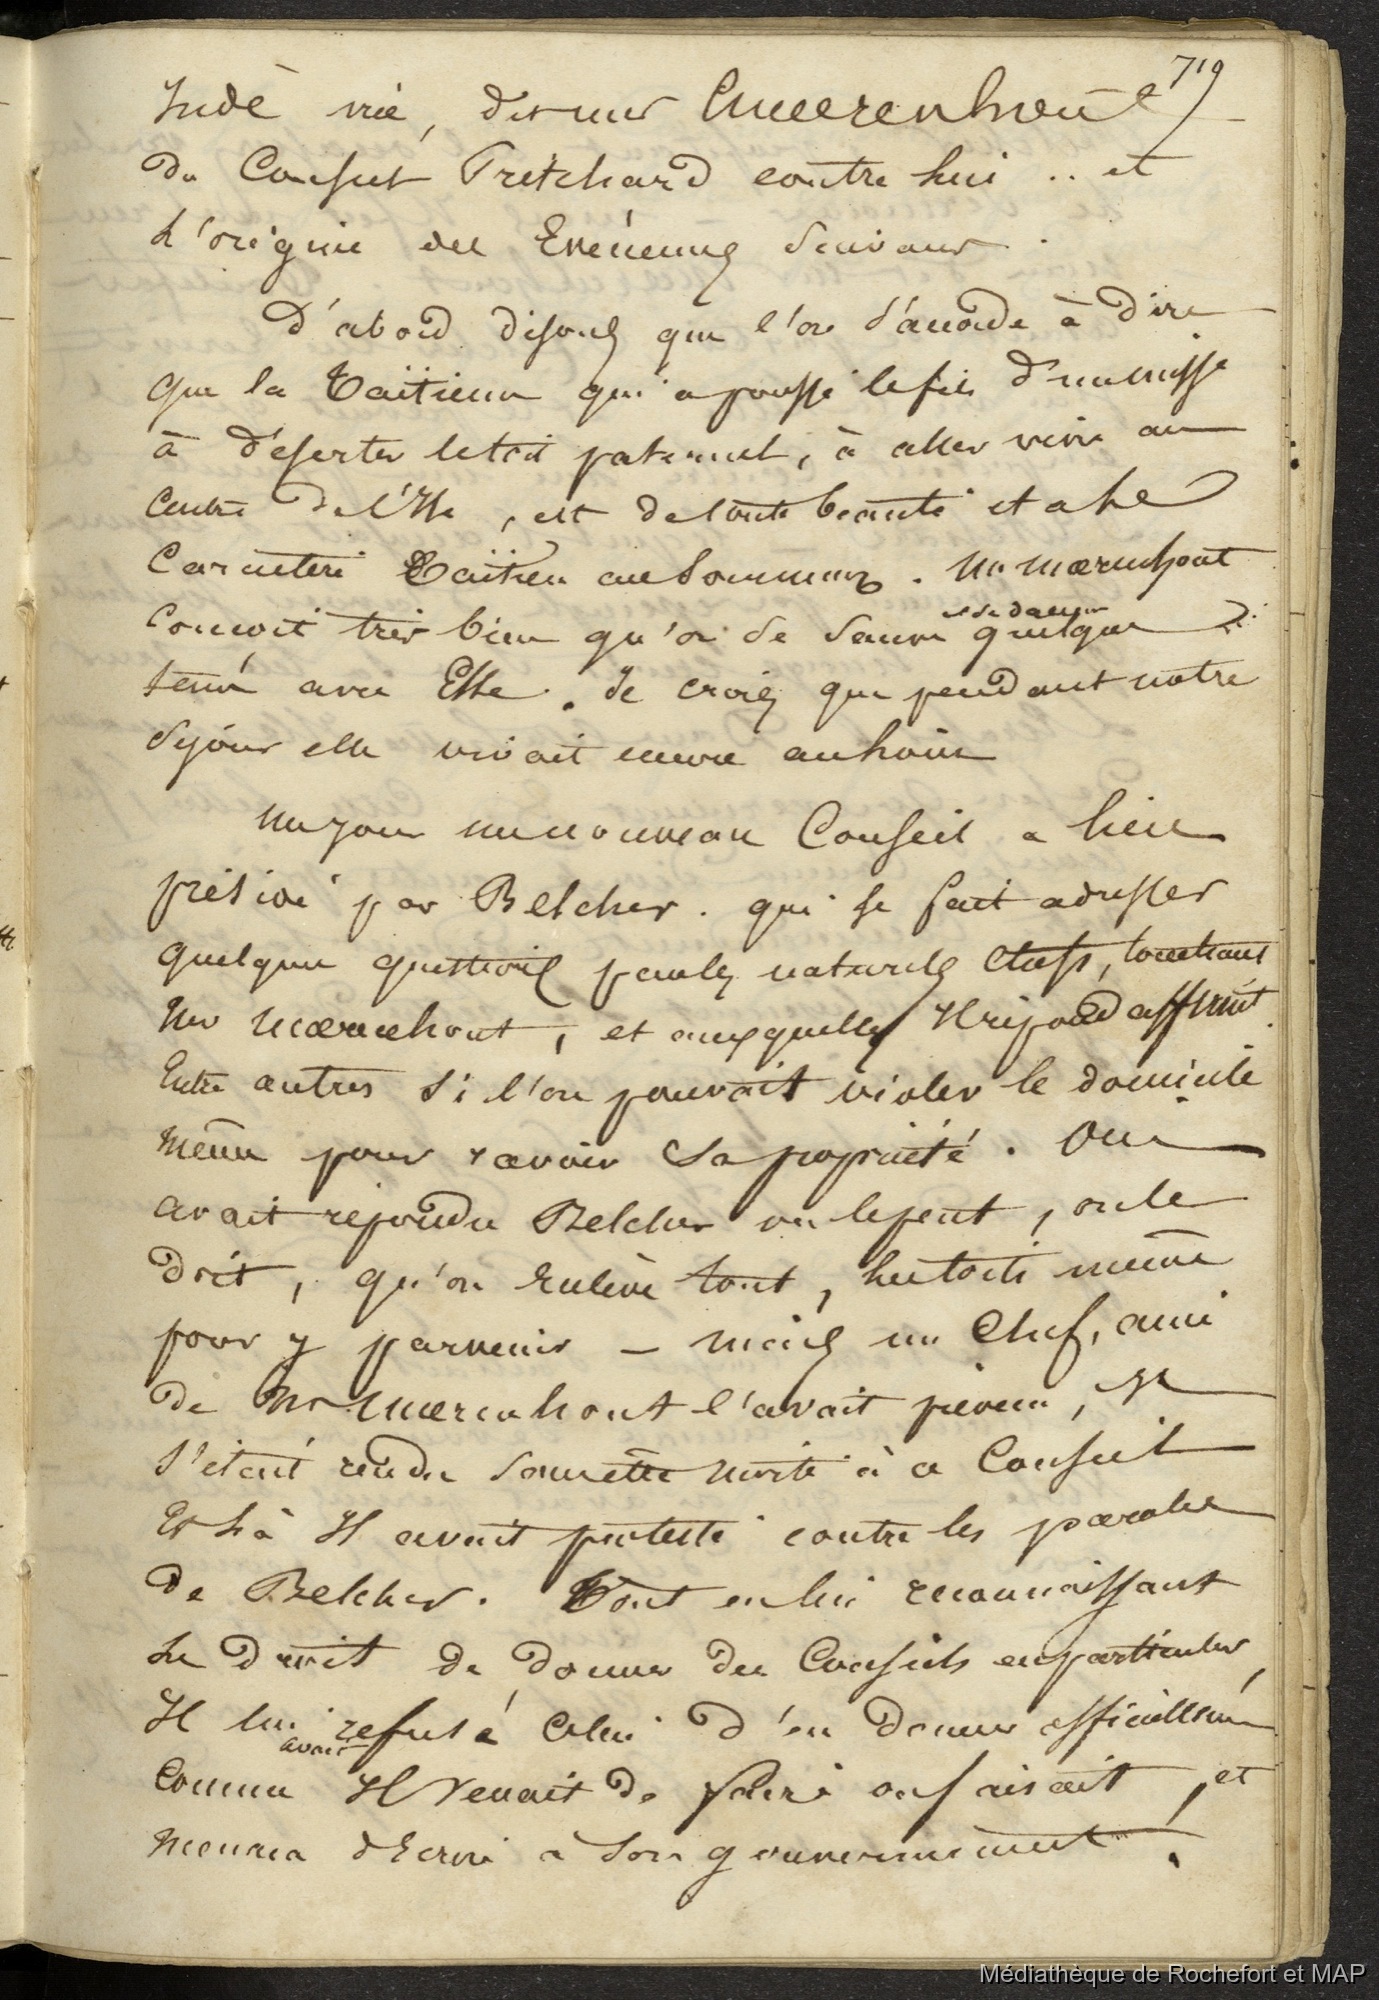 719
Inde iræ, de mr Moerenhout
du Consul Pritchard contre lui .. et
L'origine des Evénemens Suivans .
D'abord disons que l'on S'accorde à dire
que la Taïtienne qui a poussé le fils d'un missre
à déserter le toit paternel, à aller vivre au
Centre de l'Ile, est de toute beauté et a le
Caractère Taïtien au Summum. Mr Mœrenhout
Conçoit très bien qu'on se Sauve quelque
tems avec Elle. Je crois que pendant notre
Séjour elle vivait encore au
Un jour un nouveau Conseil a lieu
présidé par Belcher. qui se fait adresser
quelques questions par les naturels chefs, touchant
Mr Mœrenhout, et auxquelles Il répond affirmt.
Entre autres Si l'on pouvait violer le domicile
même pour ravoir Sa propriété. Oui
avait répondu Belcher on le peut, on le
doit, qu'on Enlève tout, les toits même
pour y parvenir – mais un Chef, ami
de Mr Mœrenhout l'avait prévenu, Il
S'était rendu Sans être invité à ce Conseil
Et là Il avait protesté contre les paroles
de Belcher. Tout en lui reconnaissant
Le Droit de donner des Conseils en particulier,
Il lui avait refusé Celui d'en donner officiellemt
Comme Il venait de faire ou faisait, et
menaça d'Ecrire à Son gouvernement.
Médiathèque de Rochefort et MAP